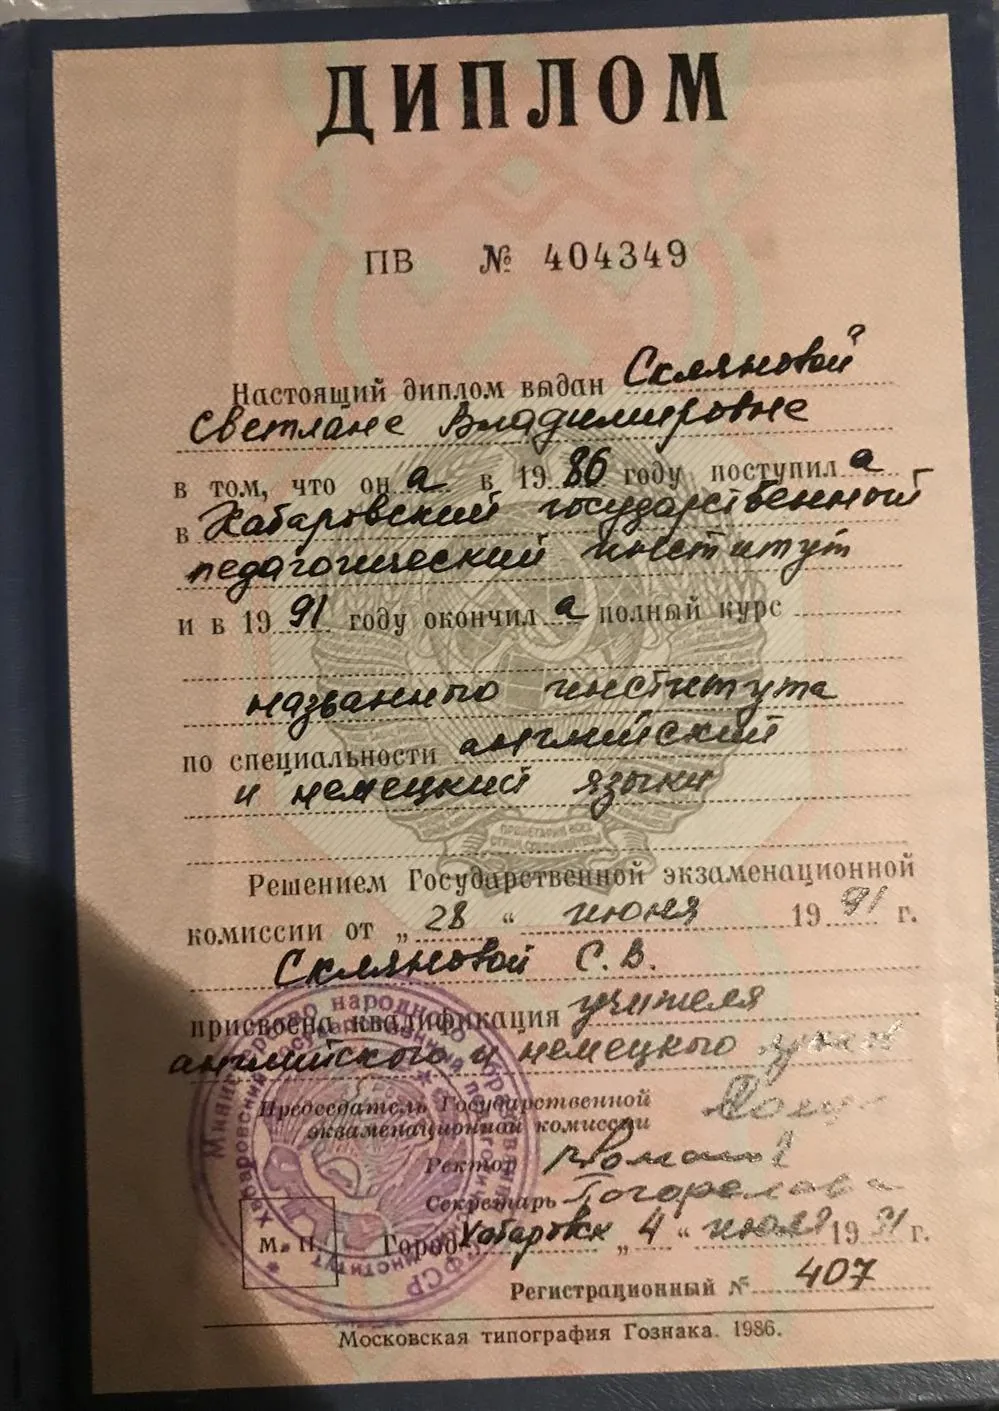 ДИПЛОМ
ПВ № 404349
Настоящий диплом выдан Скляновой
Светлане Владимировне
в том, что он а в 19 86 году поступил а
в Хабаровский государственный
педагогический институт
и в 19 91 году окончил а полный курс
названного института
по специальности английский
и немецкий языки
Решением Государственной экзаменационной
комиссии от „ 28 “ июня 19 91 г.
Скляновой С. В.
присвоена квалификация учителя
английского и немецкого
Председатель Государственной
экзаменационной комиссии
Ректор
Секретарь Погорелова
М. П. Город Хабаровск „ 4 “ июля 19 91 г.
Регистрационный № 407
Московская типография Гознака. 1986.